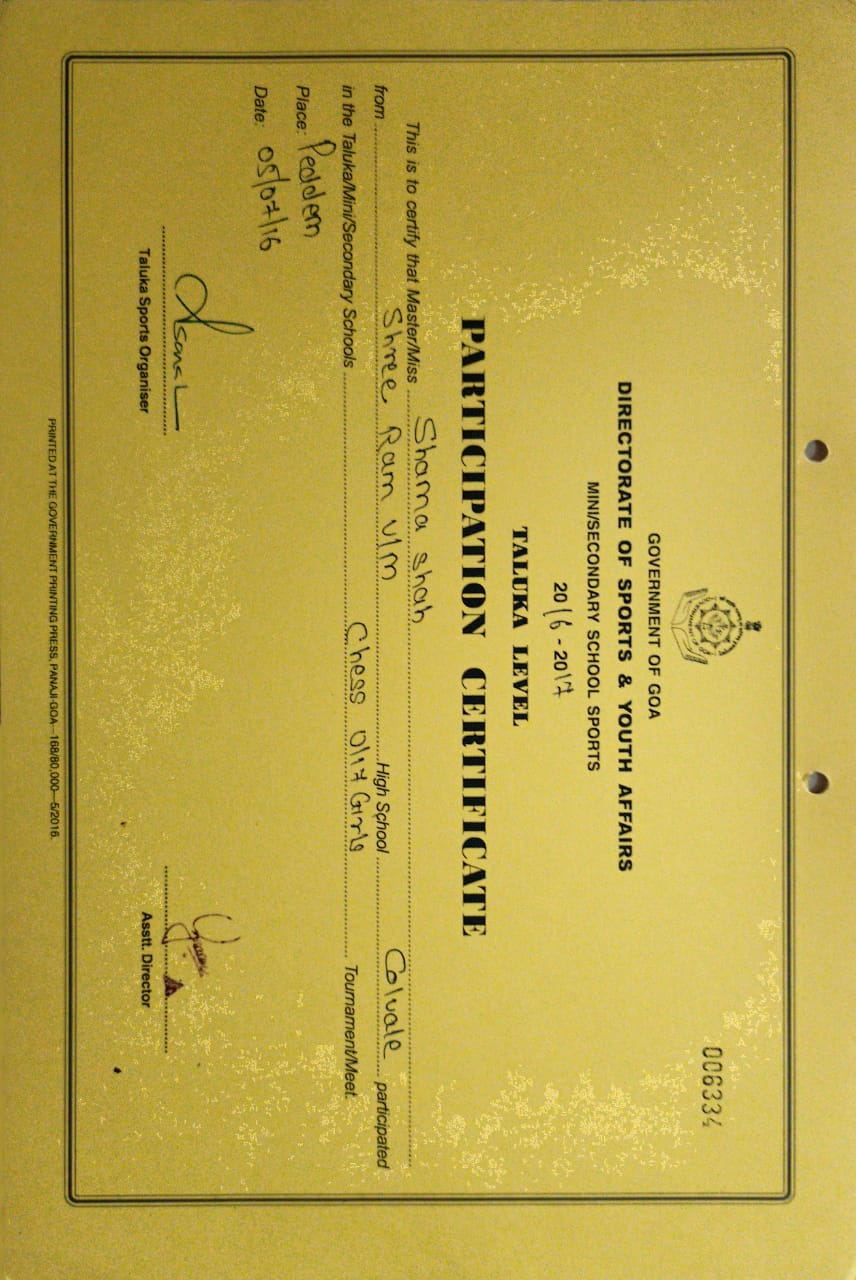 006334
GOVERNMENT OF GOA
DIRECTORATE OF SPORTS & YOUTH AFFAIRS
MINI/SECONDARY SCHOOL SPORTS
2016 - 2017
TALUKA LEVEL
PARTICIPATION CERTIFICATE
This is to certify that Master/Miss Shama Shah
from Shree Ram V/M High School Colvale participated
in the Taluka/Mini/Secondary Schools Chess U/17 Girls Tournament/Meet.
Place: Peddem
Date: 05/07/16
Taluka Sports Organiser
Asstt. Director
PRINTED AT THE GOVERNMENT PRINTING PRESS, PANAJI-GOA—168/80,000—5/2016.